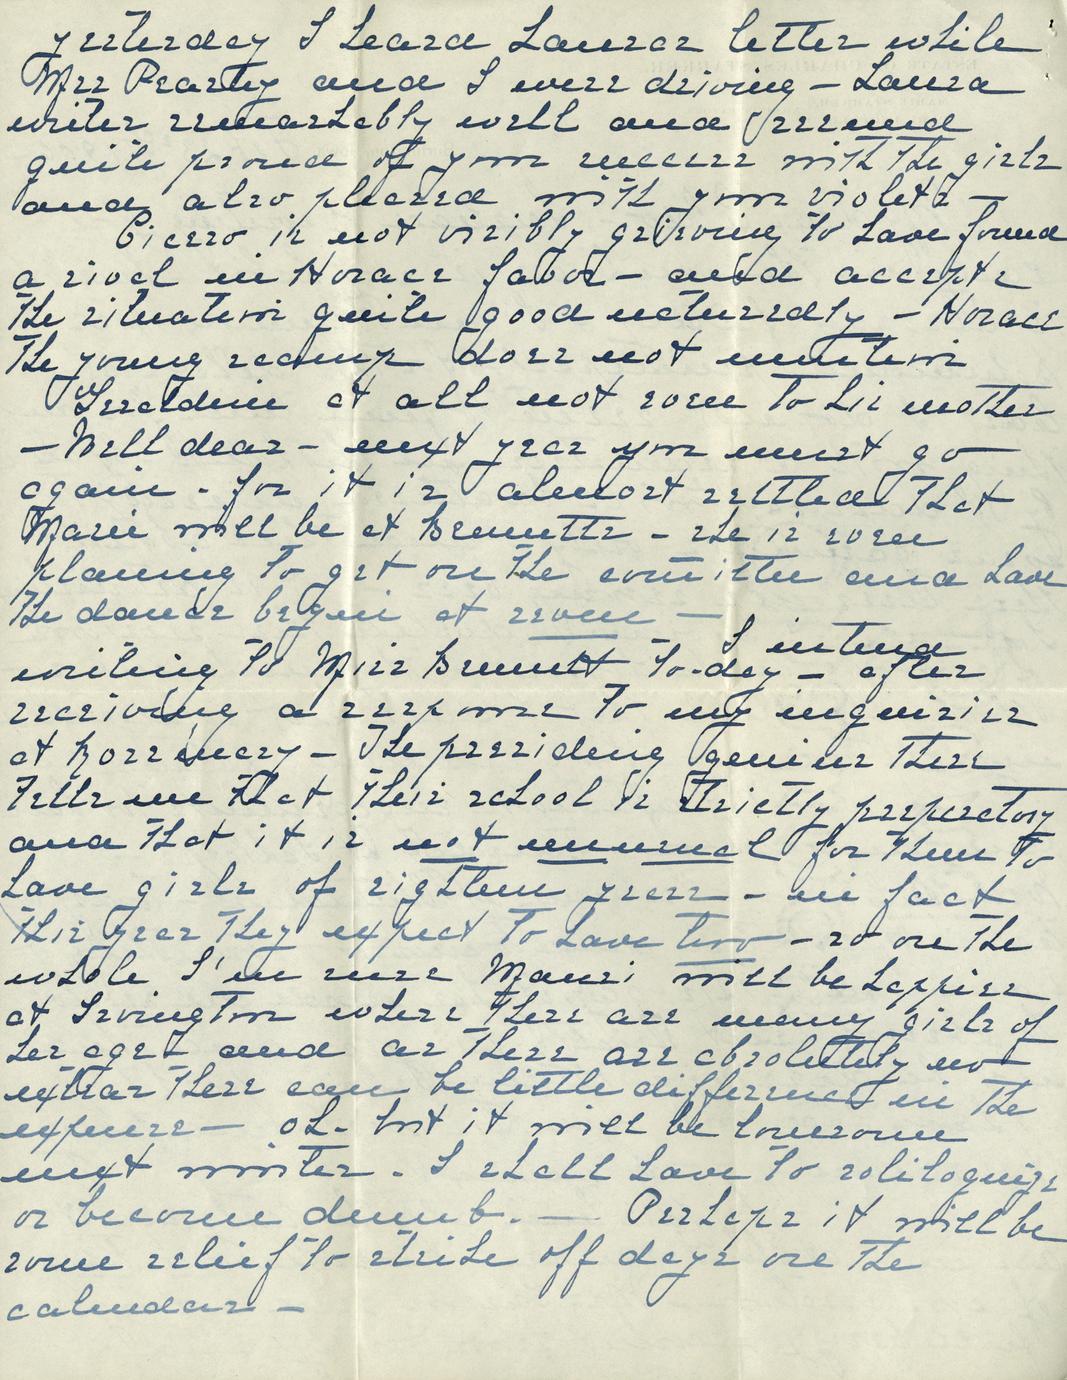 yesterday I heard Lauras letter while
Mrs Pearty and I were driving – Laura
writes remarkably well and seemed
quite proud of your success with the girls
and also pleased with your violets –
Cicero is not visibly grieving to have found
a rival in Horace favor – and accepts
the situation quite good naturedly – Horace
the young scamp does not mention
Geraldine at all not even to his mother
– Well dear – next year you must go
again – for it is almost settled that
Marie will be at Bennetts – she is even
planing to get on the comittee and have
the dance begin at seven –
I intend
writing to Miss Bennett to-day – after
receiving a response to my inquiries
at Rosemary – The presiding genius there
tells me that their school is strictly preparatory
and that it is not unusual for them to
have girls of eighteen years – in fact
this year they expect to have two – so on the
whole I'm sure Marie will be happier
at Irvington where there are many girls of
her age – and as there are absolutely no
extras there can be little difference in the
expense – oh – but it will be lonesome
next winter. I shall have to soliloquize
or become dumb. — Perhaps it will be
some relief to strike off days on the
calendar –